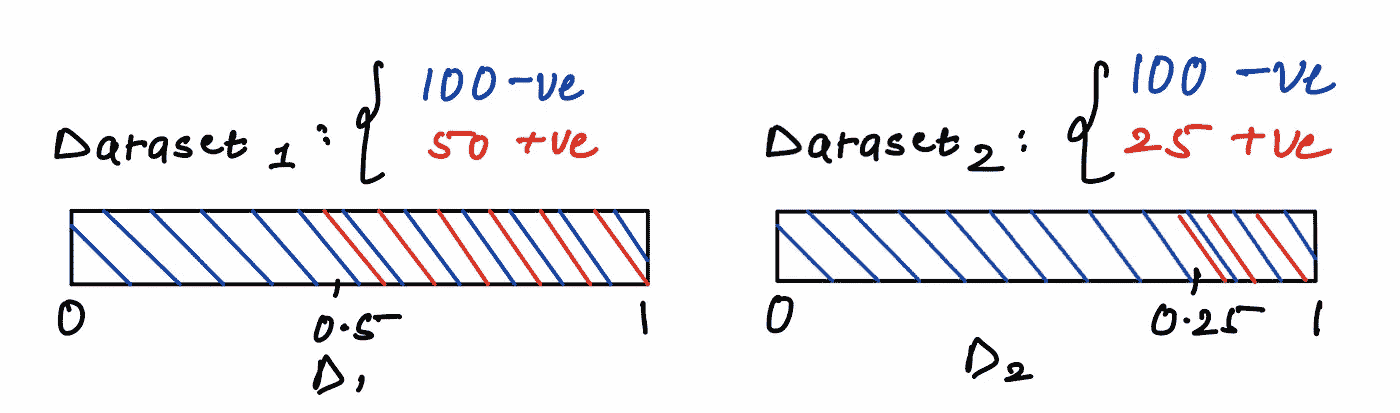 Daraset 1 : { 100 -ve
50 +ve
0 0.5 1
D1
Daraset 2 : { 100 -ve
25 +ve
0 0.25 1
D2